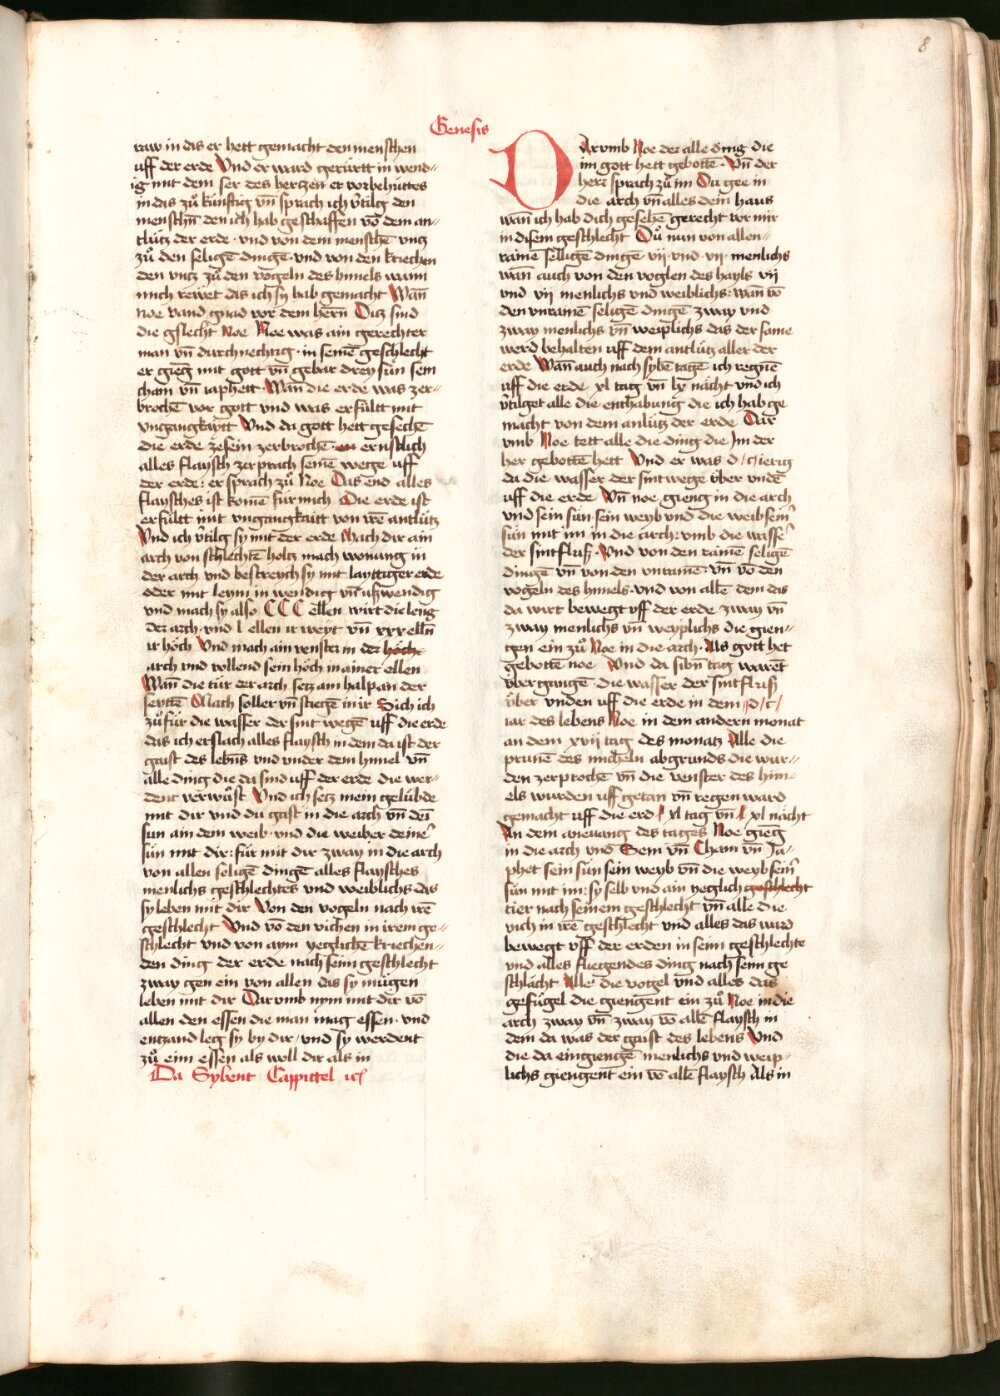 8
Genesis
raw in das er hett gemacht den menschen
uff der erde Vnd er ward gerürtt in wend-
ig mit dem ser des hertzen er vorbehüttes
in das zů künftig vn̄ sprach ich v̓tilg den
menschn̄ den ich hab geschaffen vō dem an-
tlütz der erde · vnd von dem mensche͂ vntz
zů den selige͂ dinge͂ · vnd von den kriechen
den vntz zů den vogeln des himels wann
mich rewet das ich sy hab gemacht Wan̄
noe vand gnad vor dem hern̄ Ditz sind
die gslecht Noe Noe was ain gerechter
man vn̄ durchnechtig · in seine͂ geschlecht
er gieg mit gott vn̄ gebar drey sün sem
cham vn̄ iaphett · Wan̄ die erde was zer-
broche͂ vor gott vnd was erfültt mit
vngangkaytt Vnd da gott hett geseche͂
die erde zesein zerbroche͂ · ernstlich
alles flaysch zerprach seine͂ wege uff
der erde : er sprach zů Noe Das end alles
flaysches ist kome͂ für mich Die erde ist
erfültt mit vngangkaitt von ire͂ antlütz
Vnd ich v̓tilg sy mit der erde Mach dir ain
arch von schlechte͂ holtz mach wonung in
der arch vnd bestreych sy mit layttiger erde
oder mit leym in wendig vn̄ uszwendig
vnd mach sy also CCC ellen wirt die leng
der arch · vnd l ellen ir weyt vn̄ xxx elln̄
ir höch Vnd mach ain venster in der höche
arch vnd vollend sein höch in ainer ellen
Wan̄ die tür der arch setz am halp an der
seytte͂ Mach soller vn̄ stiege͂ in ir Sich ich
zů für die wasser der sint wege͂ uff die erde
das ich erslach alles flaysch in dem da ist der
gaist des lebn̄s vnd vnder dem himel vn̄
alle ding die da sind uff der erde die wer-
dent verwůst Vnd ich setz mein gelübde
mit dir vnd du gast in die arch vn̄ dei͂
sun ain dem weib · vnd die weiber deine͂
sün mit dir : für mit dir zway in die arch
von allen selige͂ dinge͂ alles flaysches
menlichs geschlechtes vnd weiblichs das
sy leben mit dir Von den vogeln nach ire͂
geschlecht Vnd vō den vichen in irem ge-
schlecht vnd von aym yegliche͂ kriechen-
den ding der erde nach seim geschlecht
zway gen ein von allen das sy mügen
leben mit dir Darvmb nym mit dir vō
allen den essen die man mag essen · vnd
entzand leg sy by dir / vnd sy werdent
zů eim essen als woll dir als in
Da Sybent Cappittel ist
DArvmb Noe der alle ding die
im gott hett gebotte͂ · Vn̄ der
herr sprach zů im Du gee in
die arch vn̄ alles dein haus
wan̄ ich hab dich gesehe͂ gerecht vor mir
in disem geschlecht Du̍ nim von allen-
raine͂ sellige͂ dinge͂ vij · vnd · vij · menlichs
wan̄ auch von den voglen des hayls vij
vnd vij menlichs vnd weiblichs : wan̄ vō
den vnraine͂ selige͂ dinge͂ zway vnd
zway menlichs vn̄ weiplichs das der same
werd behalten uff dem antlütz aller der
erde Wan̄ auch nach sybe͂ tage͂ ich regne͂
uff die erde xl tag vn̄ lx nächt vnd ich
v̓tilget alle die enthabung die ich hab ge
macht von dem anlütz der erde Dar
vmb Noe tett alle die ding die Im der
her gebotte͂ hett Vnd er was d / c / ierig
da die wasser der sintwege über vnde͂
uff die erde Vn̄ noe gieng in die arch
vnd sein sün · sein weyb vnd die weib sein̓
sün mit im in die arch : vmb die wasse͂
der sintfluß · Vnd von den raine͂ selige͂
dinge͂ vn̄ von den vnraine͂ · vn̄ vō den
vogeln des himels · vnd von alle͂ dem das
da wirt bewegt vff der erde zway vn̄
zway menlichs vn̄ weyplichs die gien-
gen ein zů Noe in die arch · Als gott het
gebotte͂ noe Vnd da sibn̄ tag ware͂t
vber gange͂ die wasser der sintfluß
vber vnden uff die erde in dem / d / c /
iar des lebens Noe in dem andern monat
an dem xvij tag des monatz Alle die
prune͂ des micheln abgrunds die wur-
den zerproche͂ vn̄ die venster des him-
els wurden uff getan vn̄ regen ward
gemacht uff die erd / xl tag vn̄ / xl nächt
An dem anevang des tages Noe gie͂g
in die arch vnd Sem vn̄ Cham vn̄ Ja-
phet sein sün sein weyb vn̄ die weyb sein̓
sün mit im : sy selb vnd ain yeglich geschlecht
tier nach seinem geschlecht vn̄ alle die
vich in ire͂ geschlecht vnd alles das wird
bewegt vff der erden in seim geschlechte
vnd alles fliegendes ding nach seim ge
schlächt Alle die vogel vnd alles das
gefügel die giengent ein zů Noe in die
arch zway vn̄ zway vō alle͂ flaysch in
dem da was der gaist des lebens Vnd
die da eingienge͂ menlichs vnd weip-
lichs giengent ein vō alle͂ flaysch Als in